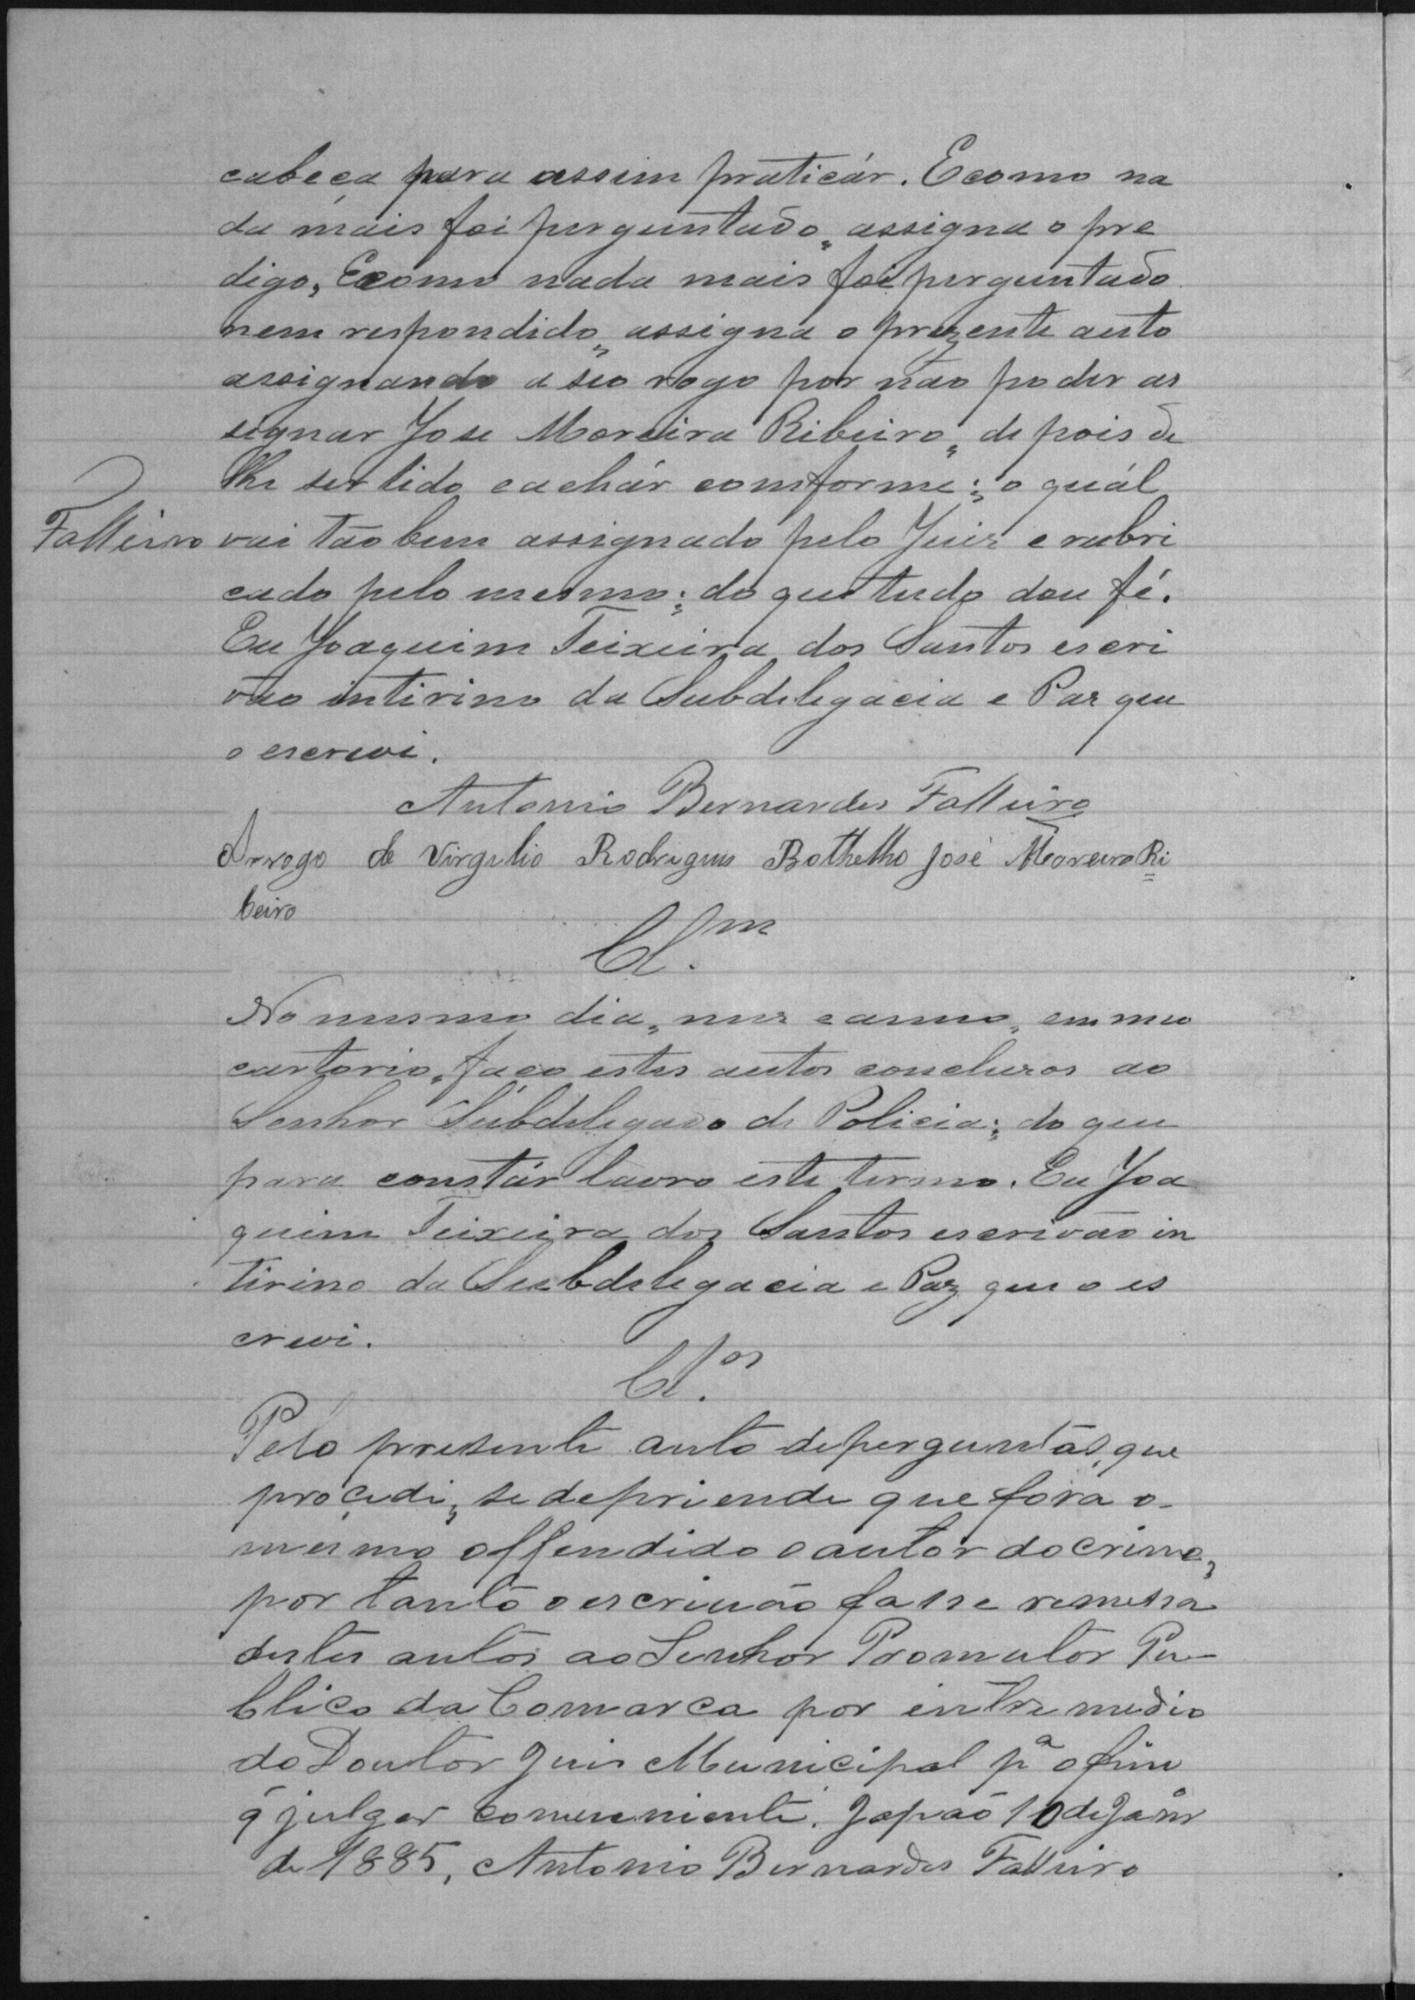 cabeça para assim praticár. Ecomo na
da mais foi perguntado, assigna o pre
digo, Ecomo nada mais foi perguntado
nem respondido, assigna o prezente auto
assignando a seo rogo por não poder as
signar Jose Moreira Ribeiro, depois de
lhe ser lido e achár comforme; o quál
Falleiro vai tão bem assignado pelo Juiz e rubri
cado pelo mesmo; do que tudo dou fé.
Eu Joaquim Teixeira dos Santos escri
vão intirino da Subdelegacia e Paz que
o escrevi.
Antonio Bernardes Falleiro
Arrogo de Virgilio Rodrigues Bothelho José Moreira Ri
beiro
Cl.m
No mesmo dia, mez e anno, em meo
cartorio, faço estes autos concluzos ao
Senhor Subdelegado de Policia; do que
para constár lavro este termo. Eu Joa
quim Teixeira dos Santos escrivão in
tirino da Subdelegacia e Paz que o es
crevi.
Cl.os
Pelo presente auto de perguntas, que
procedi, se depriende que fora o
mesmo offendido o autor do crime,
por tanto o escrivão fasse remessa
destes autos ao Senhor Promutor Pu-
blico da Comarca por entremedio
do Doutor Juis Municipal pª o fim
q̃ julgar comveniente. Japaõ 10 de Janr
de 1885, Antonio Bernardes Falleiro